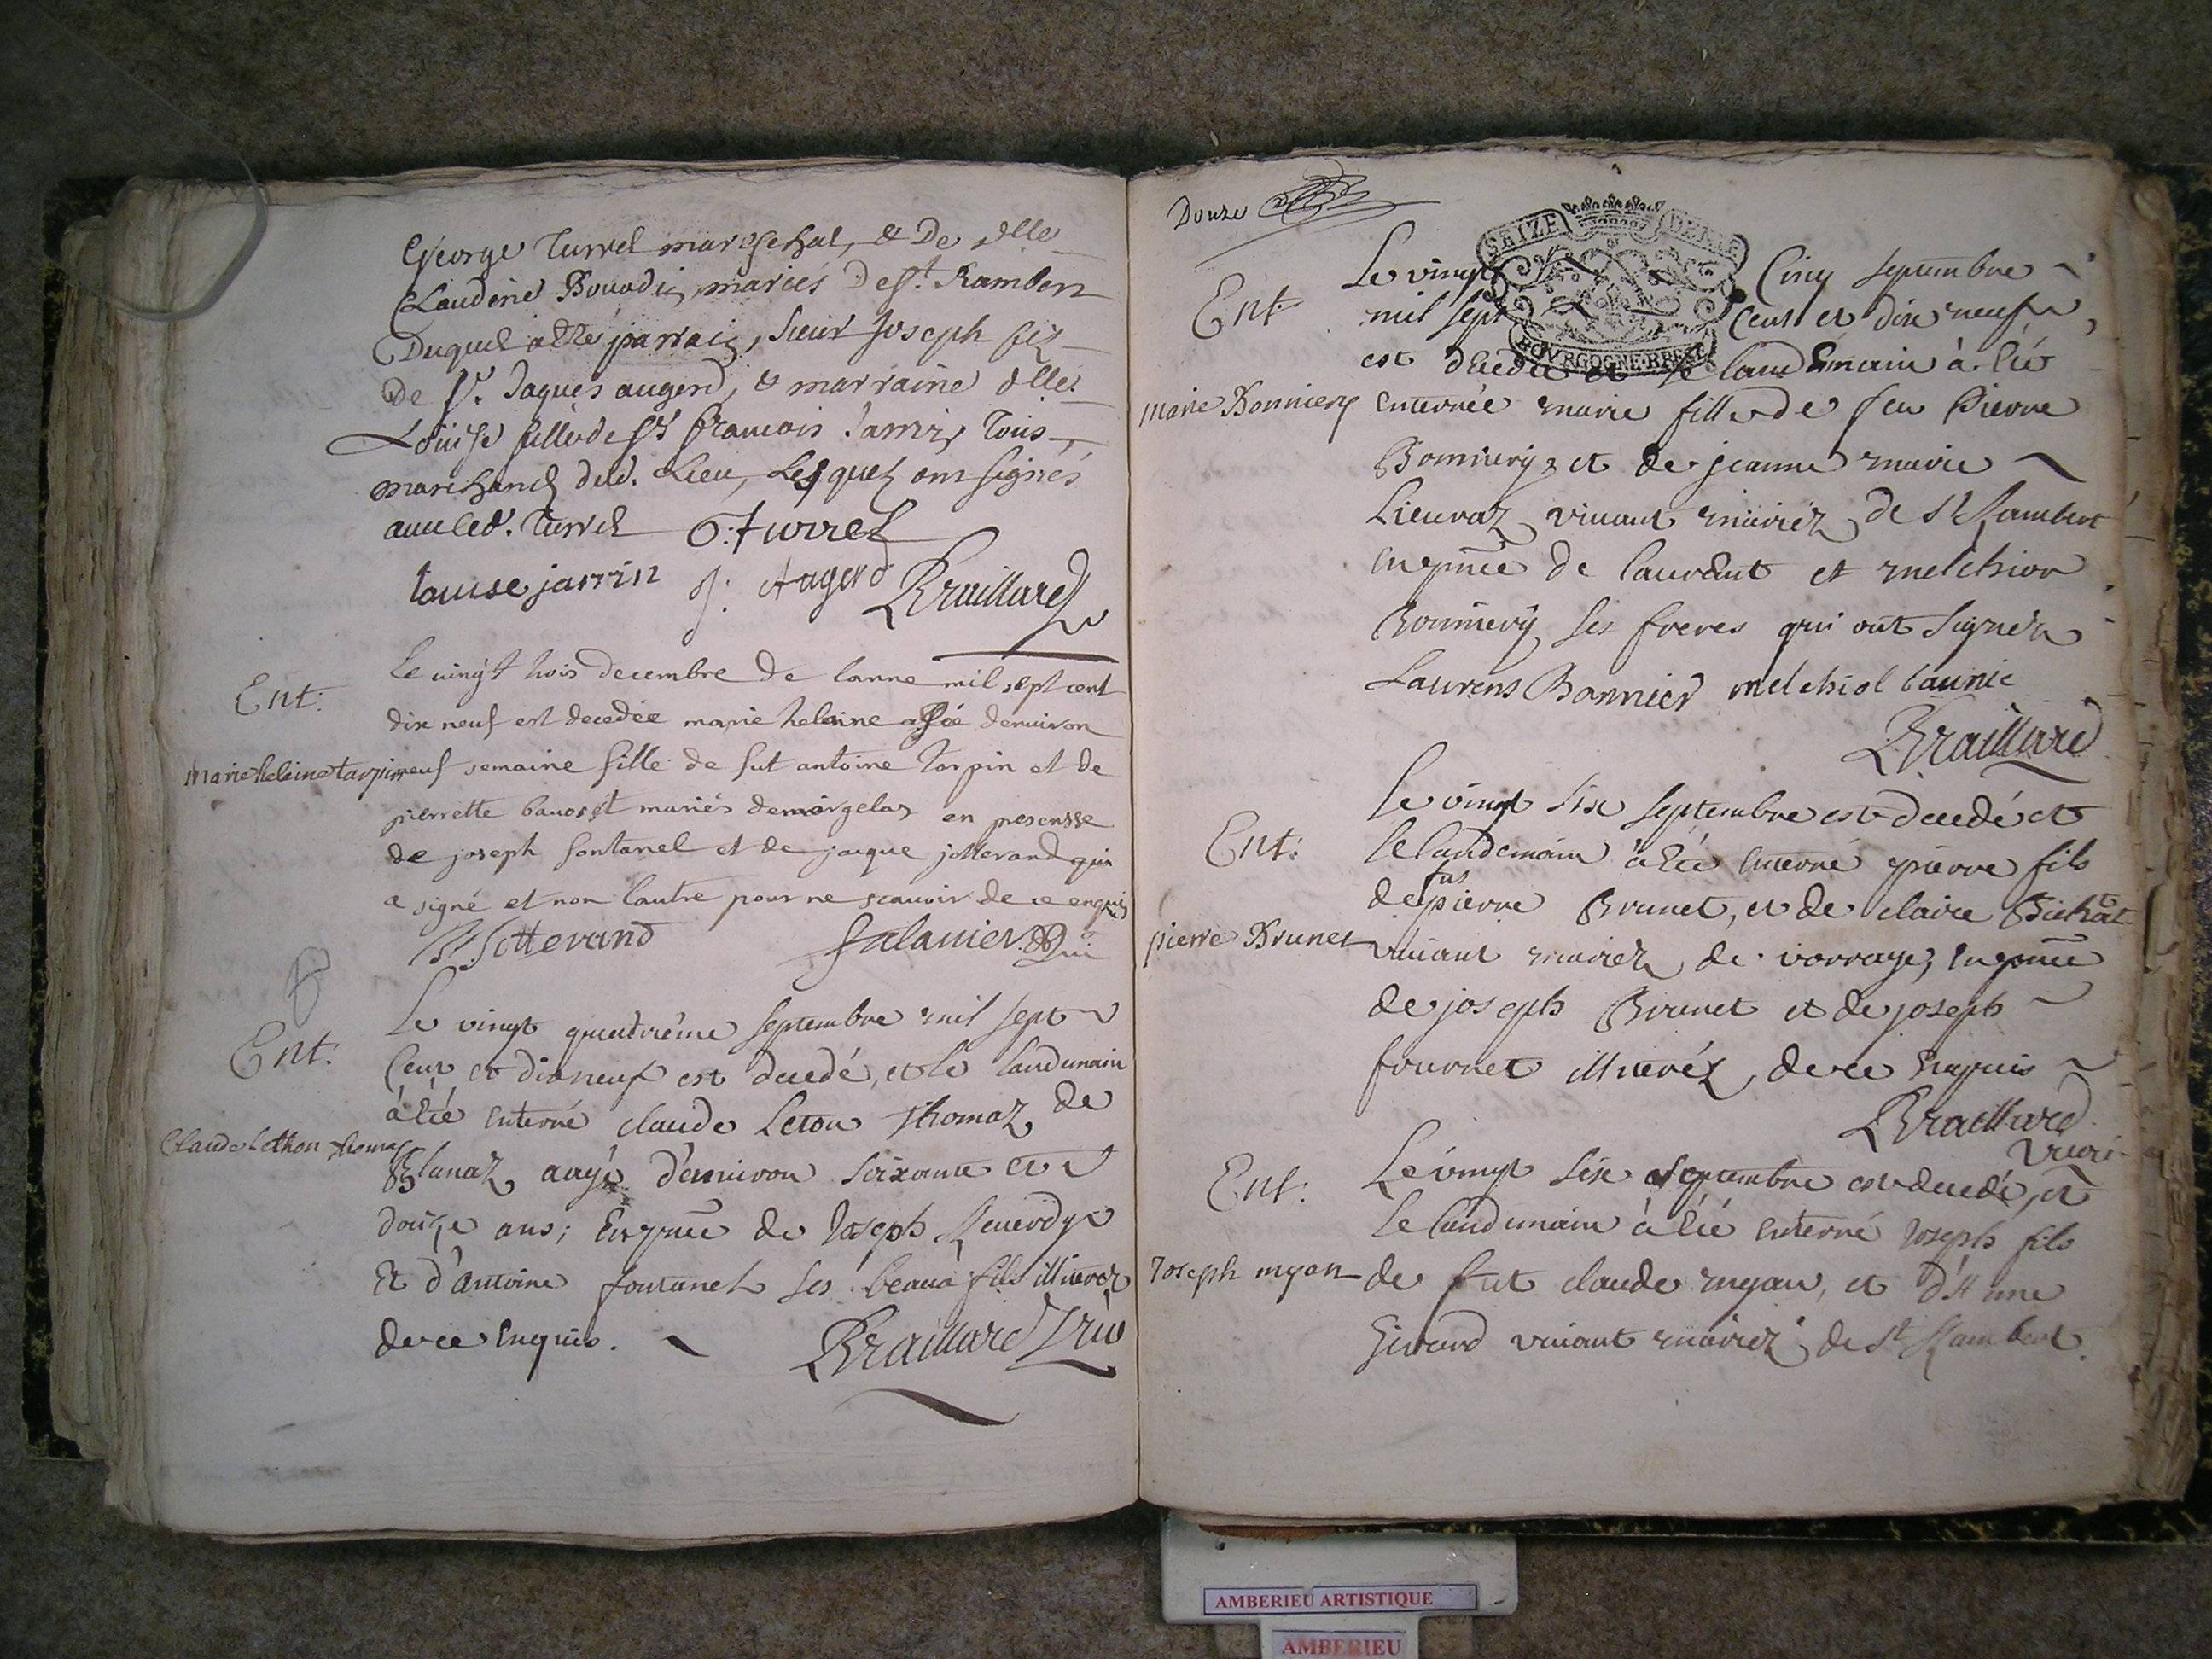 George Turrel mareschal, & De dlle
Claudine Bouvdi, mariés De st. Rambert
Duquel a été parrain, sieur Joseph fils
de sr. Jaques augerd, & marraine dlle.
Louise fille de sr francois Jarrin Tous
marchands dud. Lieu, Lesquels ont signés
avec led. Turrel G. turrel
Louise jarrin J. Augerd Braillard
Ent:
le vingt trois decembre de lanne mil sept cent
dix neuf est decedée marie helaine agée denuiron
marie helaine tarpin
neuf semaine fille de fut antoine torpin et de
pierrette mariés de morgelas en presensse
de joseph fontanel et de jacque jotterand qui
a signé et non lautre pour ne scauoir de ce enquis
J. Jotterand
Ent:
Le vingt quatrième septembre mil sept
Cent et dixneuf est decedé, et le landemain
à été enterré claude Leton Thomaz de
Claude Lethon thomas
Blanaz aagé d'enuiron soixante et
douze ans; En pnce de Joseph
Et d'antoine fontanel ses beaux fils illiterez
de ce enquis. Braillard vic
Douze
SEIZE DENIE
BOVRGOGNE·BRESE
Ent:
Le vingt Cinq septembre
mil sept Cent et dix neuf,
est decedée et le landemain à été
marie Bonniery
enterrée marie fille de feu Pierre
Bonniery et de jeanne marie
Lieuraz viuant mariez de st Rambert
en pnce de laurent et melchior
Bonniery ses freres qui ont signez
Laurens Bonnier melchiol baunie
Braillard
Ent:
Le vingt six septembre est decedé et
le landemain à été enterré pierre fils
de fut pierre Brunet, et de claire Bichat
pierre Brunet
viuant mariez de vorrage, en pnce
de joseph Brunet et de joseph
fournet illiteréz, de ce enquis
Braillard
vicai-
Ent:
Le vingt six septembre est decedé, et
le landemain à été enterré Joseph fils
Joseph myan
de fut claude myan, et d'Anne
Girard viuant mariez de st Rambert.
AMBERIEU ARTISTIQUE
AMBERIEU